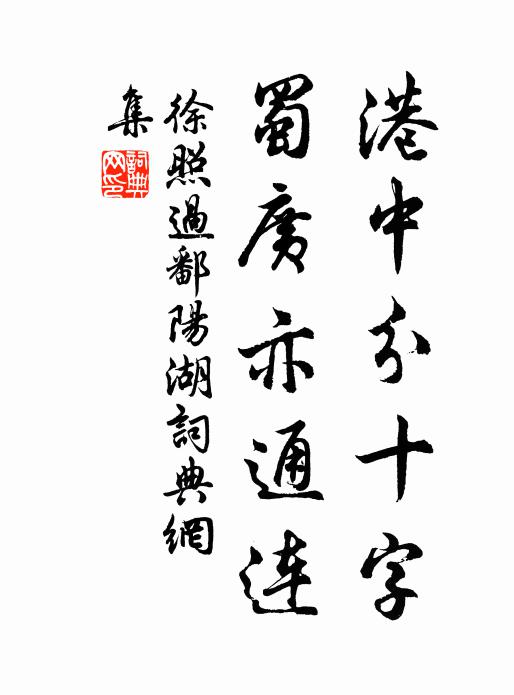 港中分十字
蜀廣亦通連
徐照過鄱陽湖詞典網
集
詞典
网印